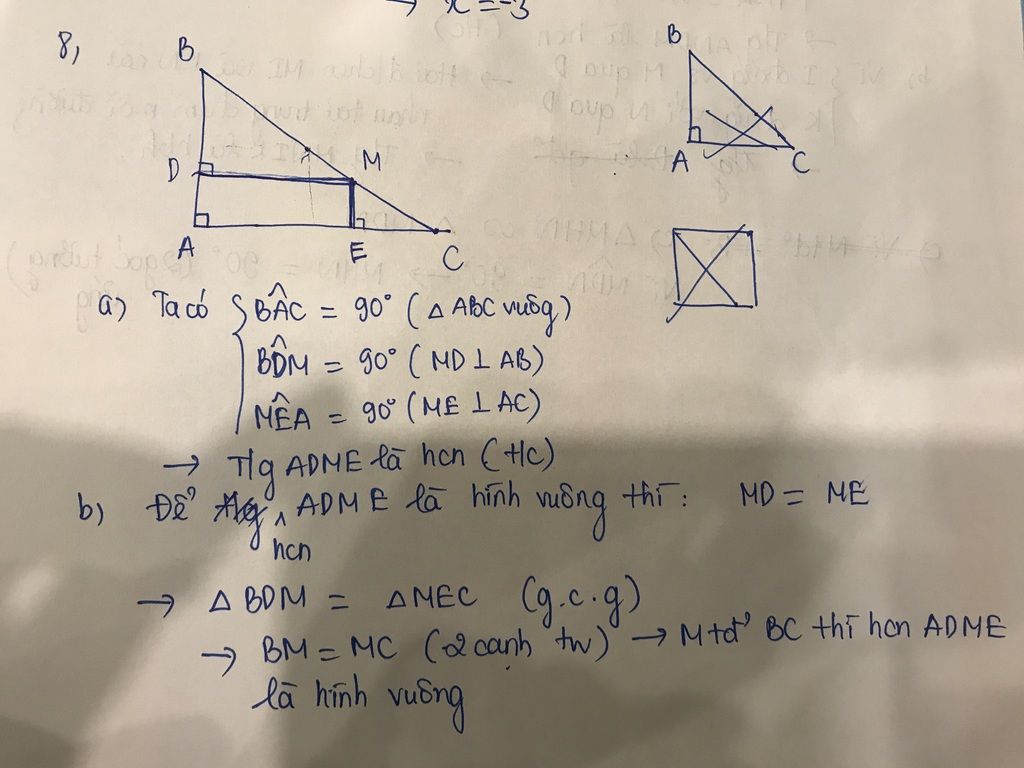 → x = -3
8,
B
D
M
A
E
C
B
A
C
a) Ta có { BÂC = 90° (△ ABC vuôg)
BD̂M = 90° (MD ⊥ AB)
MÊA = 90° (ME ⊥ AC)
→ T/g ADME là hcn (t/c)
b) Để hcn ADME là hình vuông thì: MD = ME
→ △ BDM = △ MEC (g.c.g)
→ BM = MC (2 cạnh tw) → M tđ' BC thì hcn ADME
là hình vuông